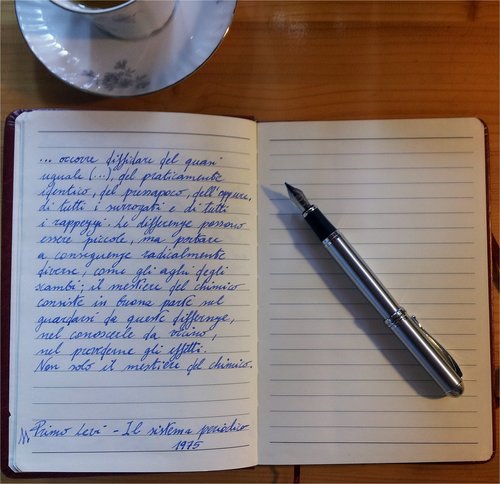 ... occorre diffidare del quasi
uguale (...), del praticamente
identico, del pressapoco, dell'oppure,
di tutti i surrogati e di tutti
i rappezzi. Le differenze possono
essere piccole, ma portare
a conseguenze radicalmente
diverse, come gli aghi degli
scambi; il mestiere del chimico
consiste in buona parte nel
guardarsi da queste differenze,
nel conoscerle da vicino,
nel prevederne gli effetti.
Non solo il mestiere del chimico.
Primo Levi - Il sistema periodico
1975